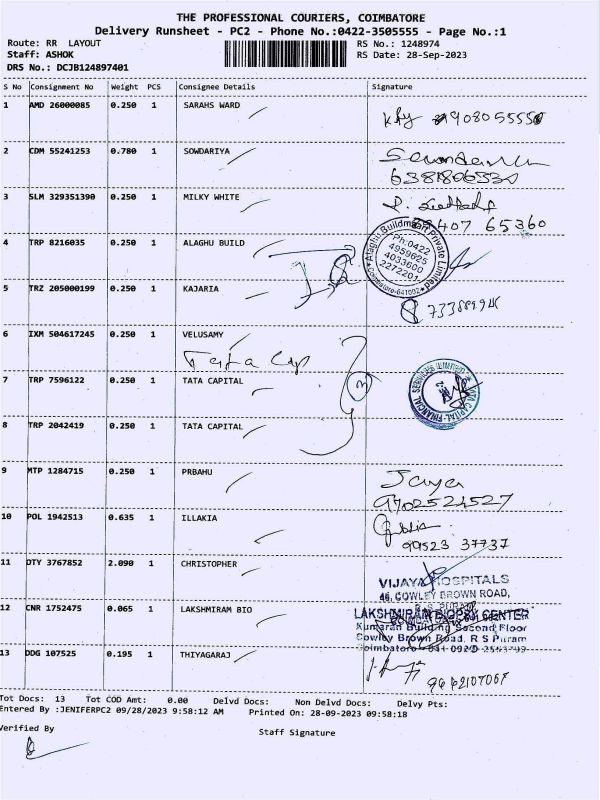 THE PROFESSIONAL COURIERS, COIMBATORE
Delivery Runsheet - PC2 - Phone No.:0422-3505555 - Page No.:1
Route: RR LAYOUT
RS No.: 1248974
Staff: ASHOK
RS Date: 28-Sep-2023
DRS No.: DCJB124897401
S No Consignment No Weight PCS Consignee Details Signature
1 AMD 26000085 0.250 1 SARAHS WARD
2 CDM 55241253 0.780 1 SOWDARIYA
3 SLM 329351390 0.250 1 MILKY WHITE
65360
4 TRP 8216035 0.250 1 ALAGHU BUILD
Alaghu Buildmaart Private Limited
Ph:0422
4959625
4033600
2272201
Coimbatore-641002
5 TRZ 205000199 0.250 1 KAJARIA
6 IXM 504617245 0.250 1 VELUSAMY
Tata Cap
7 TRP 7596122 0.250 1 TATA CAPITAL
3
TATA CAPITAL FINANCIAL SERVICES LIMITED
8 TRP 2042419 0.250 1 TATA CAPITAL
9 MTP 1284715 0.250 1 PRBAHU
Jaya
9702524527
10 POL 1942513 0.635 1 ILLAKIA
99523 37737
11 DTY 3767852 2.090 1 CHRISTOPHER
VIJAYA HOSPITALS
46, COWLEY BROWN ROAD,
12 CNR 1752475 0.065 1 LAKSHMIRAM BIO
LAKSHMIRAM BIOPSY CENTER
Kumaran Building Second Floor
Cowley Brown Road, R S Puram
Coimbatore
13 DDG 107525 0.195 1 THIYAGARAJ
Tot Docs: 13 Tot COD Amt: 0.00 Delvd Docs: Non Delvd Docs: Delvy Pts:
Entered By :JENIFERPC2 09/28/2023 9:58:12 AM Printed On: 28-09-2023 09:58:18
Verified By
Staff Signature